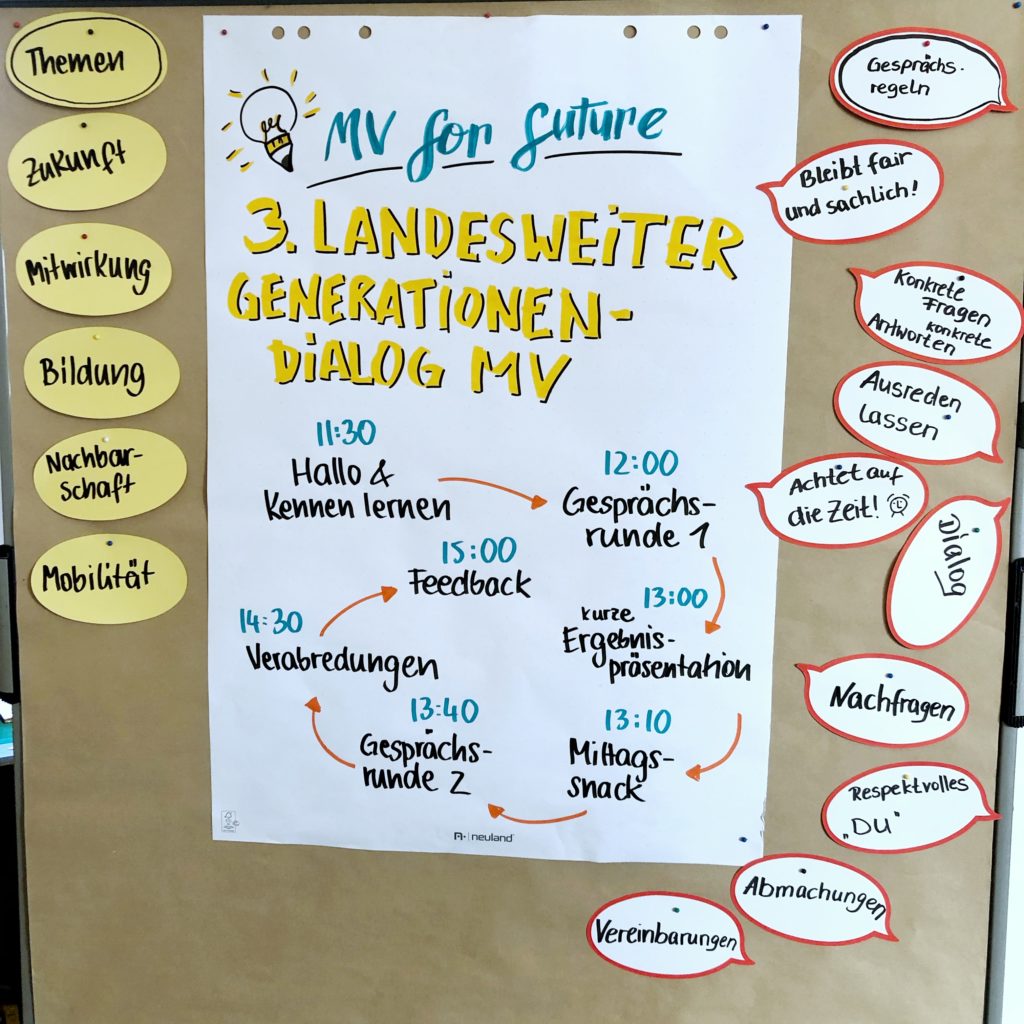 Themen
Zukunft
Mitwirkung
Bildung
Nachbar-
schaft
Mobilität
MV for future
3. LANDESWEITER
GENERATIONEN-
DIALOG MV
11:30
Hallo &
Kennen lernen
12:00
Gesprächs-
runde 1
13:00
kurze
Ergebnis-
präsentation
13:10
Mittags-
snack
13:40
Gesprächs-
runde 2
14:30
Verabredungen
15:00
Feedback
neuland
Gesprächs-
regeln
Bleibt fair
und sachlich!
Konkrete
Fragen
konkrete
Antworten
Ausreden
lassen
Achtet auf
die Zeit!
Dialog
Nachfragen
Respektvolles
„DU"
Abmachungen
Vereinbarungen